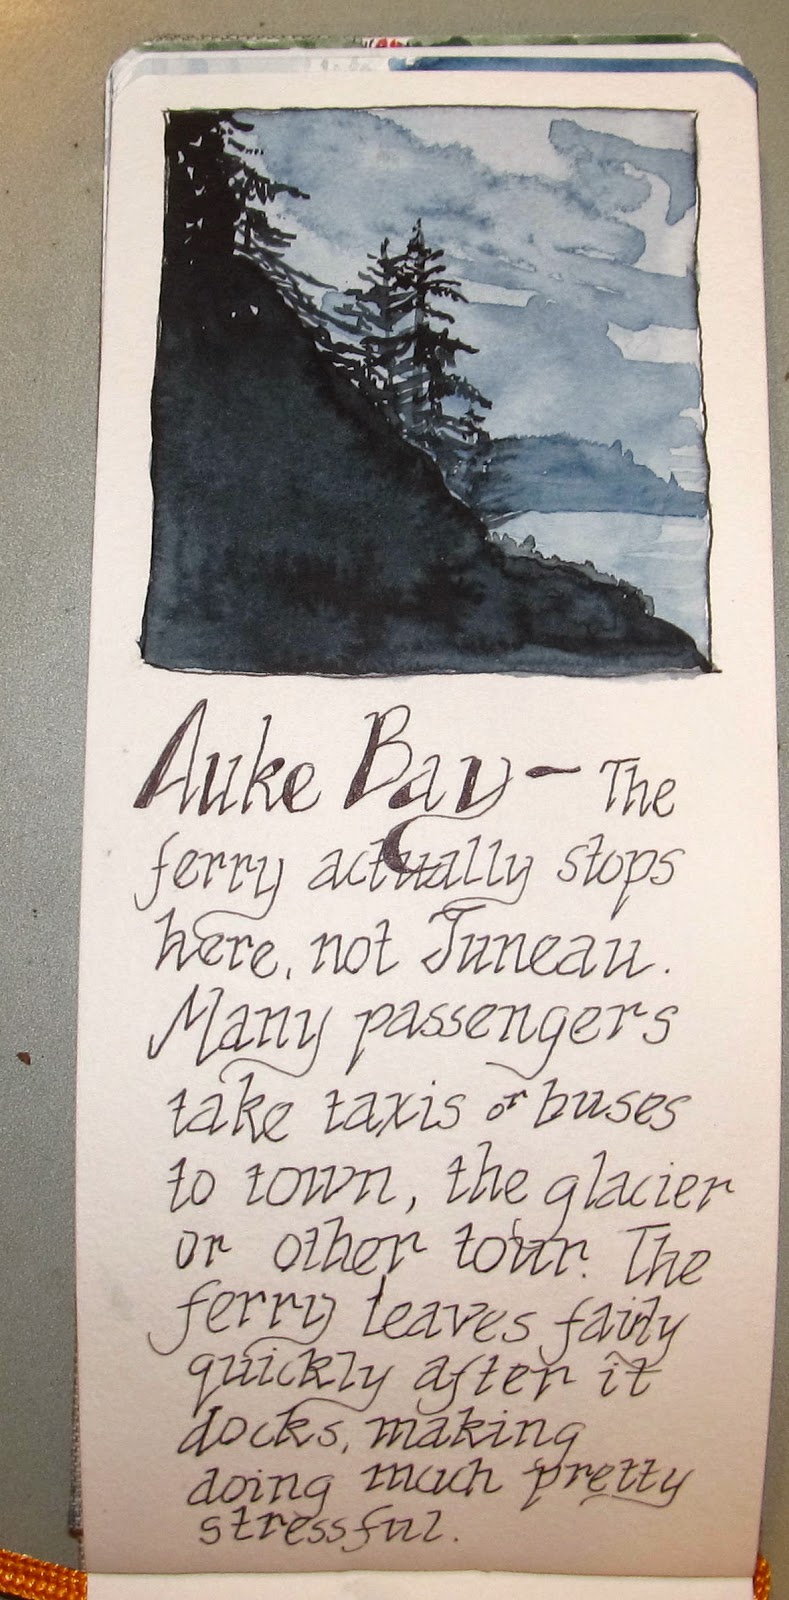 Auke Bay - The
ferry actually stops
here, not Juneau.
Many passengers
take taxis or buses
to town, the glacier
or other tour. The
ferry leaves fairly
quickly after it
docks, making
doing much pretty
stressful.